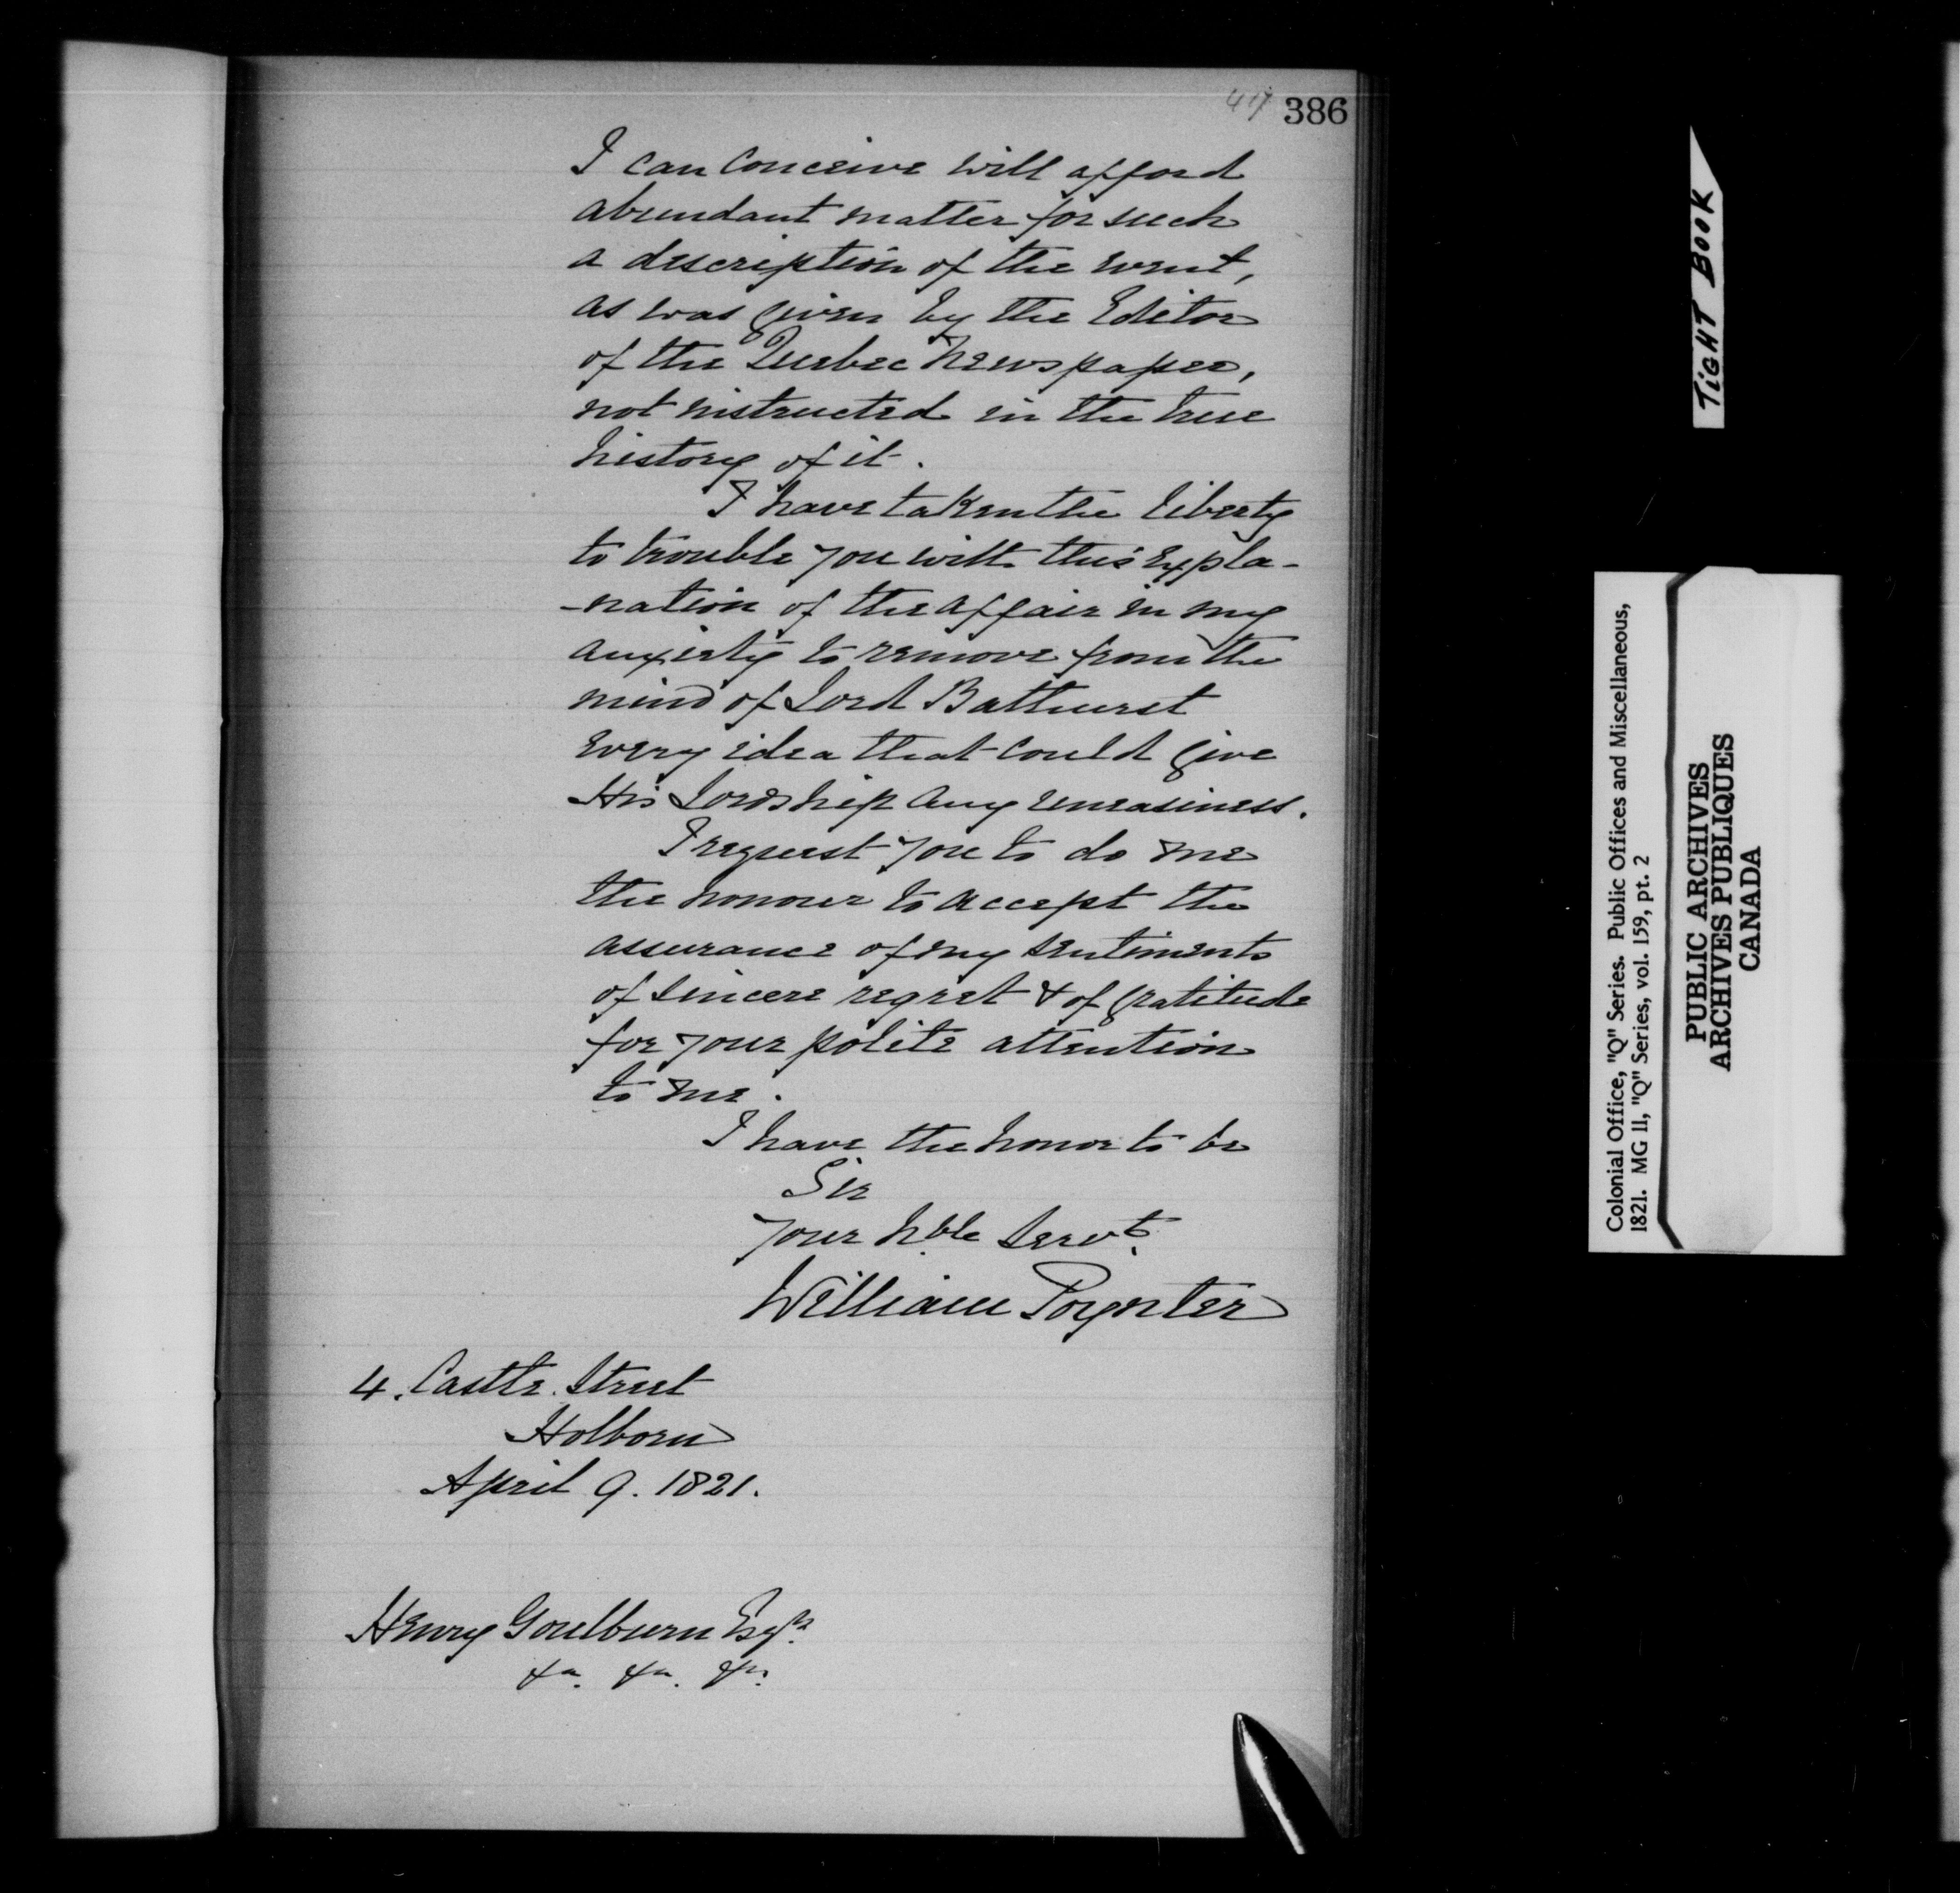 386
I can conceive will afford
abundant matter for such
a description of the event,
as was given by the Editor
of the Quebec Newspaper,
not instructed in the true
history of it.
I have taken the liberty
to trouble you with this expla-
-nation of the affair in my
anxiety to remove from the
mind of Lord Bathurst
every idea that could give
His Lordship any uneasiness.
I request you to do me
the honour to accept the
assurance of my sentiments
of sincere regret & of gratitude
for your polite attention
to me.
I have the honor to be
Sir
Your hble Servt.
William Poynter
4. Castle Street
Holborn
April 9. 1821.
Henry Goulburn Esqr.
&c. &c. &c.
TIGHT BOOK
Colonial Office, "Q" Series. Public Offices and Miscellaneous,
1821. MG 11, "Q" Series, vol. 159, pt. 2
PUBLIC ARCHIVES
ARCHIVES PUBLIQUES
CANADA